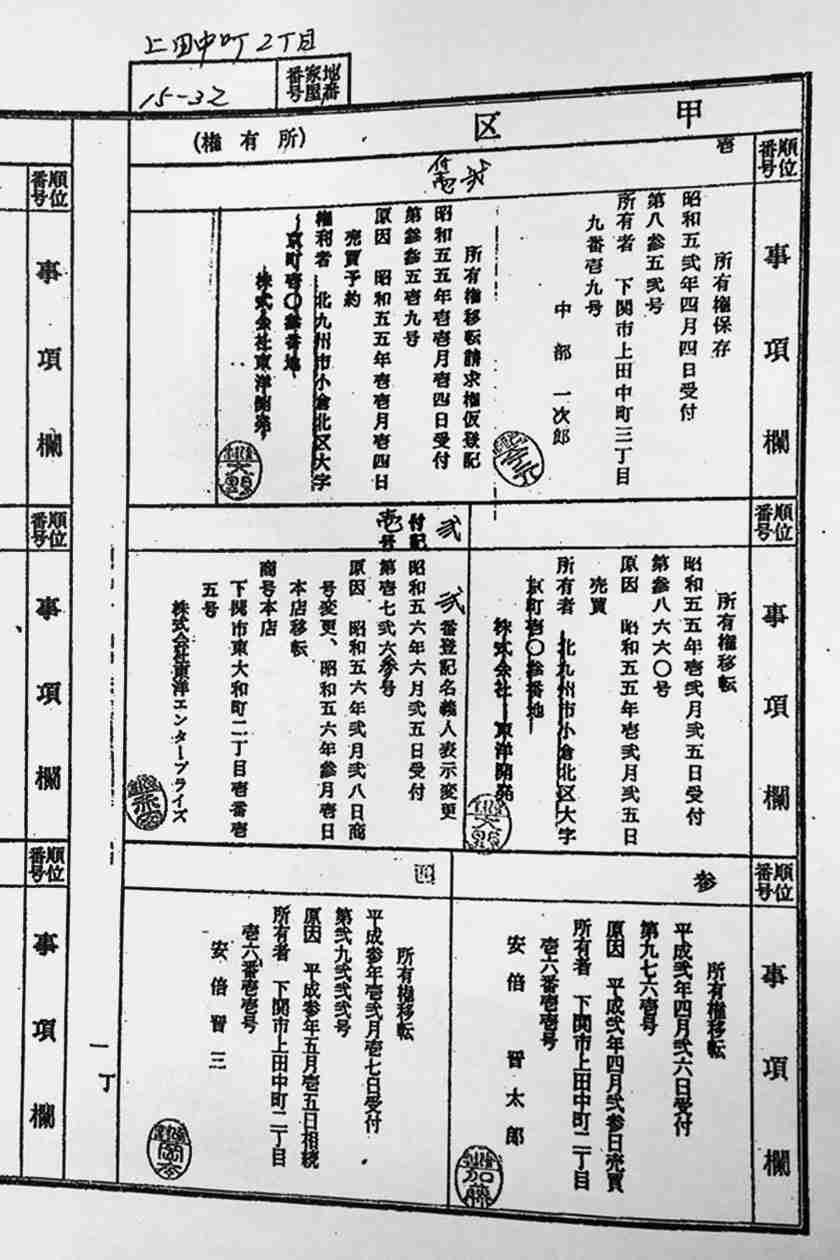 上田中町2丁目
地番
家屋
番号
15-32
甲区
(所有権)
順位
番号
壱
事項欄
所有権保存
昭和五弐年四月四日受付
第八参五弐号
所有者 下関市上田中町三丁目
九番壱九号
中部一次郎
弐
付壱
所有権移転請求権仮登記
昭和五五年壱壱月壱四日受付
第参参五壱九号
原因 昭和五五年壱壱月壱四日
売買予約
権利者 北九州市小倉北区大字
京町壱〇参番地
株式会社東洋開発
順位
番号
事項欄
所有権移転
昭和五五年壱弐月弐五日受付
第参八六六〇号
原因 昭和五五年壱弐月弐五日
売買
所有者 北九州市小倉北区大字
京町壱〇参番地
株式会社東洋開発
弐
付記
壱号
弐番登記名義人表示変更
昭和五六年六月弐五日受付
第壱七弐六参号
原因 昭和五六年弐月弐八日商
号変更、昭和五六年参月壱日
本店移転
商号本店
下関市東大和町二丁目壱番壱
五号
株式会社東洋エンタープライズ
順位
番号
参
事項欄
所有権移転
平成弐年四月弐六日受付
第九七六壱号
原因 平成弐年四月弐参日売買
所有者 下関市上田中町二丁目
壱六番壱壱号
安倍晋太郎
四
所有権移転
平成参年壱弐月壱七日受付
第弐九弐弐弐号
原因 平成参年五月壱五日相続
所有者 下関市上田中町二丁目
壱六番壱壱号
安倍晋三
一丁
順位
番号
事項欄
順位
番号
事項欄
順位
番号
事項欄